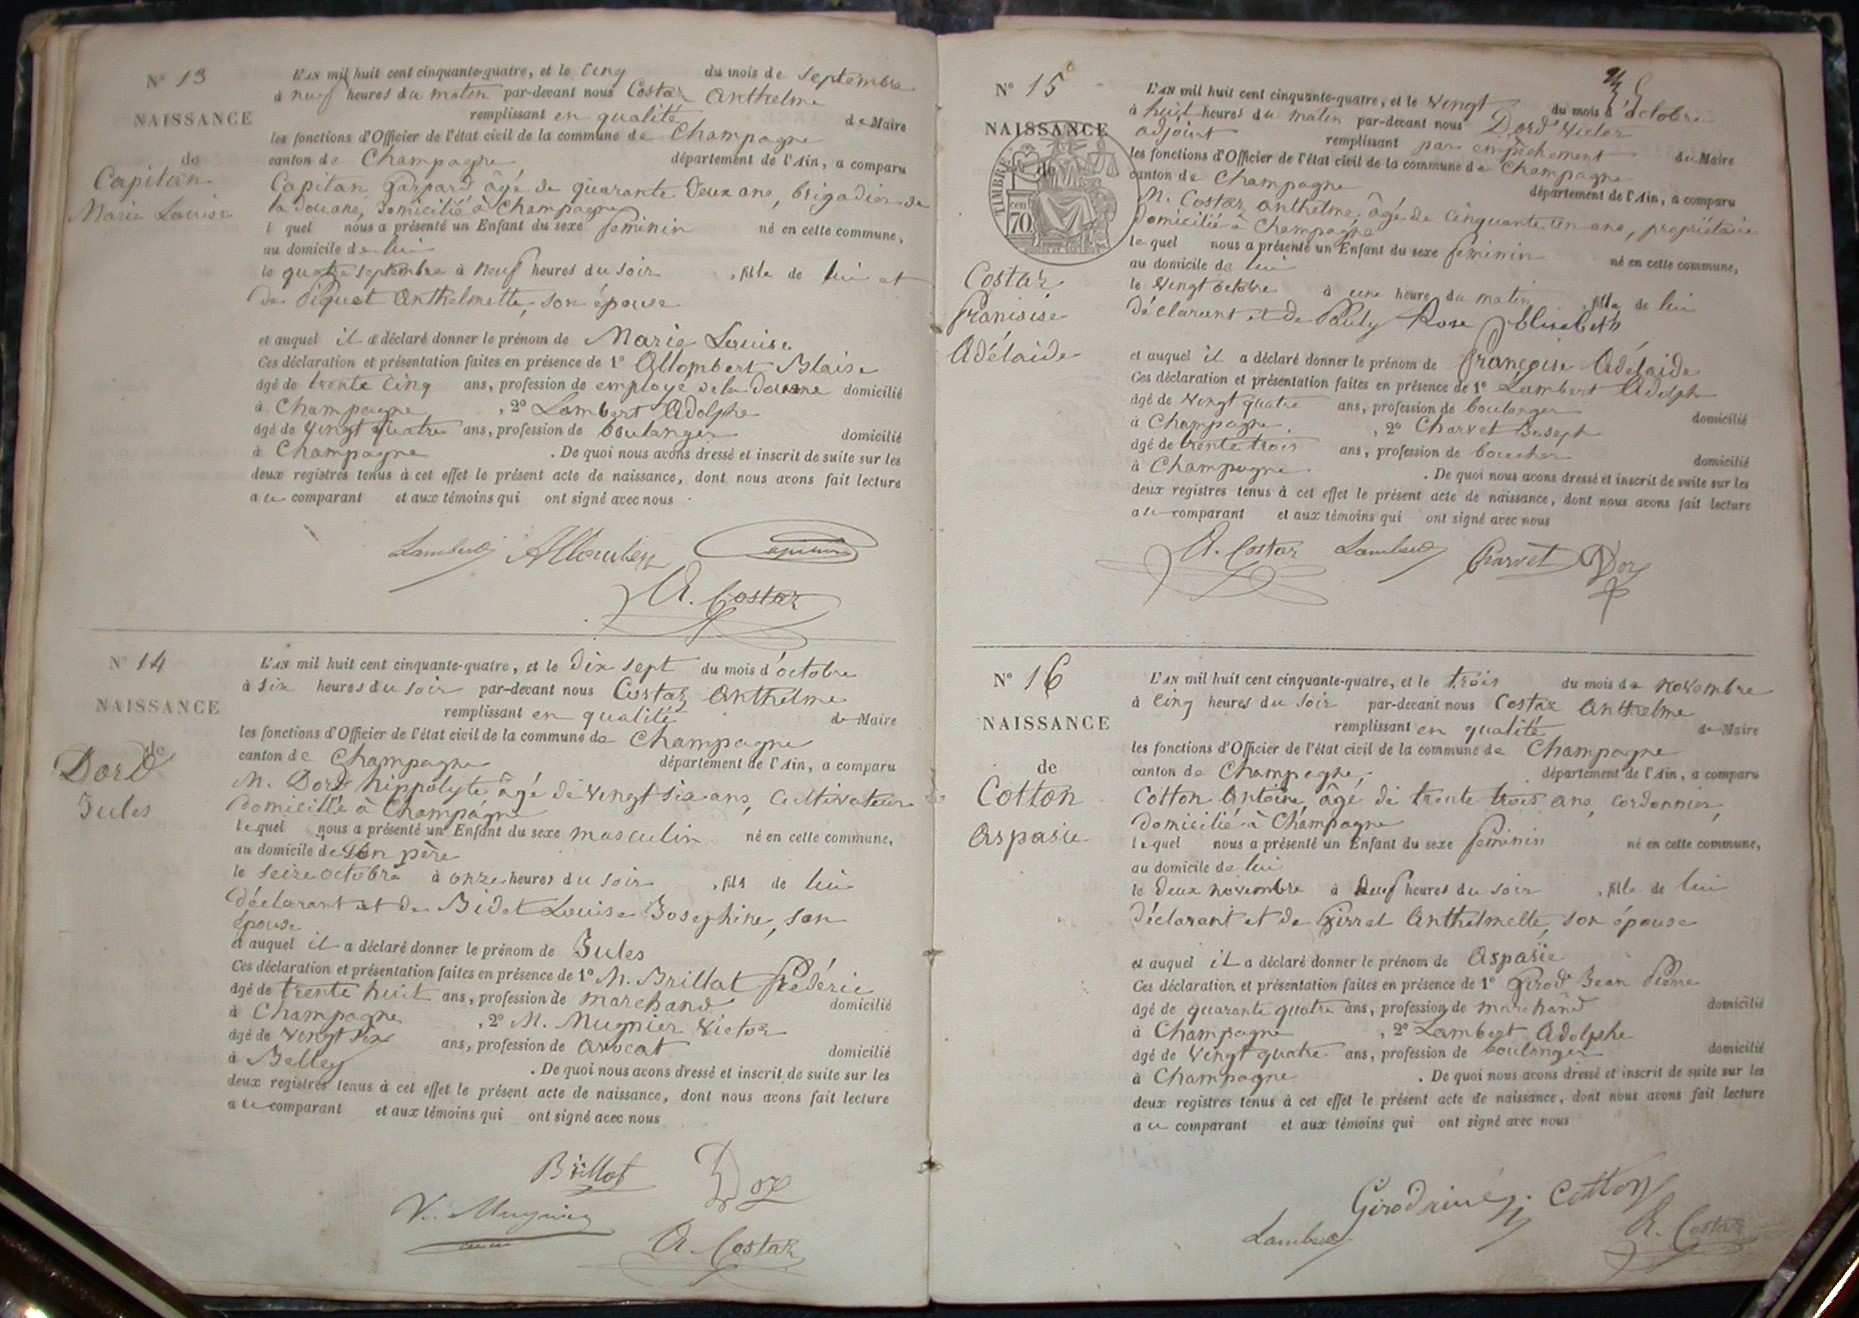 N° 13
NAISSANCE
de
Capitan
Marie Louise
L'AN mil huit cent cinquante-quatre, et le cinq du mois de septembre
à neuf heures du matin par-devant nous Costaz Anthelme
remplissant en qualité de Maire
les fonctions d'Officier de l'état civil de la commune de Champagne
canton de Champagne département de l'Ain, a comparu
Capitan Gaspard âgé de quarante deux ans, brigadier de
la douane, domicilié à Champagne
lequel nous a présenté un Enfant du sexe féminin né en cette commune,
au domicile de lui
le quatre septembre à neuf heures du soir, fille de lui et
de Piquet Anthelmette, son épouse
et auquel il a déclaré donner le prénom de Marie Louise
Ces déclaration et présentation faites en présence de 1° Allombert Blaise
âgé de trente cinq ans, profession de employé de la douane domicilié
à Champagne, 2° Lambert Adolphe
âgé de vingt quatre ans, profession de boulanger domicilié
à Champagne. De quoi nous avons dressé et inscrit de suite sur les
deux registres tenus à cet effet le présent acte de naissance, dont nous avons fait lecture
au comparant et aux témoins qui ont signé avec nous
Lambert Allomber Capitan
A. Costaz
N° 14
NAISSANCE
de
Dord
Jules
L'AN mil huit cent cinquante-quatre, et le dix sept du mois d'octobre
à six heures du soir par-devant nous Costaz Anthelme
remplissant en qualité de Maire
les fonctions d'Officier de l'état civil de la commune de Champagne
canton de Champagne département de l'Ain, a comparu
M. Dord hippolyte âgé de vingt six ans, cultivateur
domicilié à Champagne
lequel nous a présenté un Enfant du sexe masculin né en cette commune,
au domicile de son père
le seize octobre à onze heures du soir, fils de lui
déclarant et de Bidet Louise Josephine, son
épouse
et auquel il a déclaré donner le prénom de Jules
Ces déclaration et présentation faites en présence de 1° M. Brillat Frédéric
âgé de trente huit ans, profession de marchand domicilié
à Champagne, 2° M. Mugnier Victor
âgé de vingt six ans, profession de avocat domicilié
à Belley. De quoi nous avons dressé et inscrit de suite sur les
deux registres tenus à cet effet le présent acte de naissance, dont nous avons fait lecture
au comparant et aux témoins qui ont signé avec nous
Brillat Dor
V. Mugnier
A. Costaz
N° 15
NAISSANCE
de
TIMBRE
70
Costaz
Francisise
Adélaide
L'AN mil huit cent cinquante-quatre, et le vingt du mois d'octobre
à huit heures du matin par-devant nous Dord Victor
adjoint remplissant par empêchement du Maire
les fonctions d'Officier de l'état civil de la commune de Champagne
canton de Champagne département de l'Ain, a comparu
M. Costaz anthelme, âgé de cinquante un ans, propriétaire
domicilié à Champagne
lequel nous a présenté un Enfant du sexe féminin né en cette commune,
au domicile de lui
le vingt octobre à une heure du matin, fille de lui
déclarant et de Pauly Rose Elisabeth
et auquel il a déclaré donner le prénom de Françoise Adélaide
Ces déclaration et présentation faites en présence de 1° Lambert Adolph
âgé de vingt quatre ans, profession de boulanger domicilié
à Champagne, 2° Charvet Joseph
âgé de trente trois ans, profession de boucher domicilié
à Champagne. De quoi nous avons dressé et inscrit de suite sur les
deux registres tenus à cet effet le présent acte de naissance, dont nous avons fait lecture
au comparant et aux témoins qui ont signé avec nous
A. Costaz Lambert Charvet Dor
N° 16
NAISSANCE
de
Cotton
Aspasie
L'AN mil huit cent cinquante-quatre, et le trois du mois de novembre
à cinq heures du soir par-devant nous Costaz Anthelme
remplissant en qualité de Maire
les fonctions d'Officier de l'état civil de la commune de Champagne
canton de Champagne, département de l'Ain, a comparu
Cotton Antoine, âgé de trente trois ans, cordonnier,
domicilié à Champagne
lequel nous a présenté un Enfant du sexe féminin né en cette commune,
au domicile de lui
le deux novembre à neuf heures du soir, fille de lui
déclarant et de Girrel Anthelmette, son épouse
et auquel il a déclaré donner le prénom de Aspasie
Ces déclaration et présentation faites en présence de 1° Girod Jean Pierre
âgé de quarante quatre ans, profession de marchand domicilié
à Champagne, 2° Lambert Adolphe
âgé de vingt quatre ans, profession de boulanger domicilié
à Champagne. De quoi nous avons dressé et inscrit de suite sur les
deux registres tenus à cet effet le présent acte de naissance, dont nous avons fait lecture
au comparant et aux témoins qui ont signé avec nous
Girod Cotton
Lambert A. Costaz